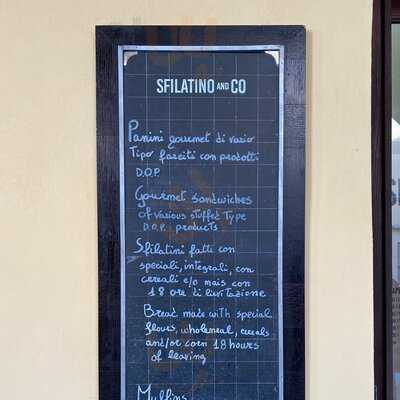 SFILATINO AND CO
Panini gourmet di vario
Tipo farciti con prodotti
D.O.P.
Gourmet sandwiches
of various stuffed Type
D.O.P. products
Sfilatini fatti con
speciali, integrali, con
cereali e/o mais con
18 ore di lievitazione
Bread made with special
flours, wholemeal, cereals
and/or corn 18 hours
of leaving
Muffins